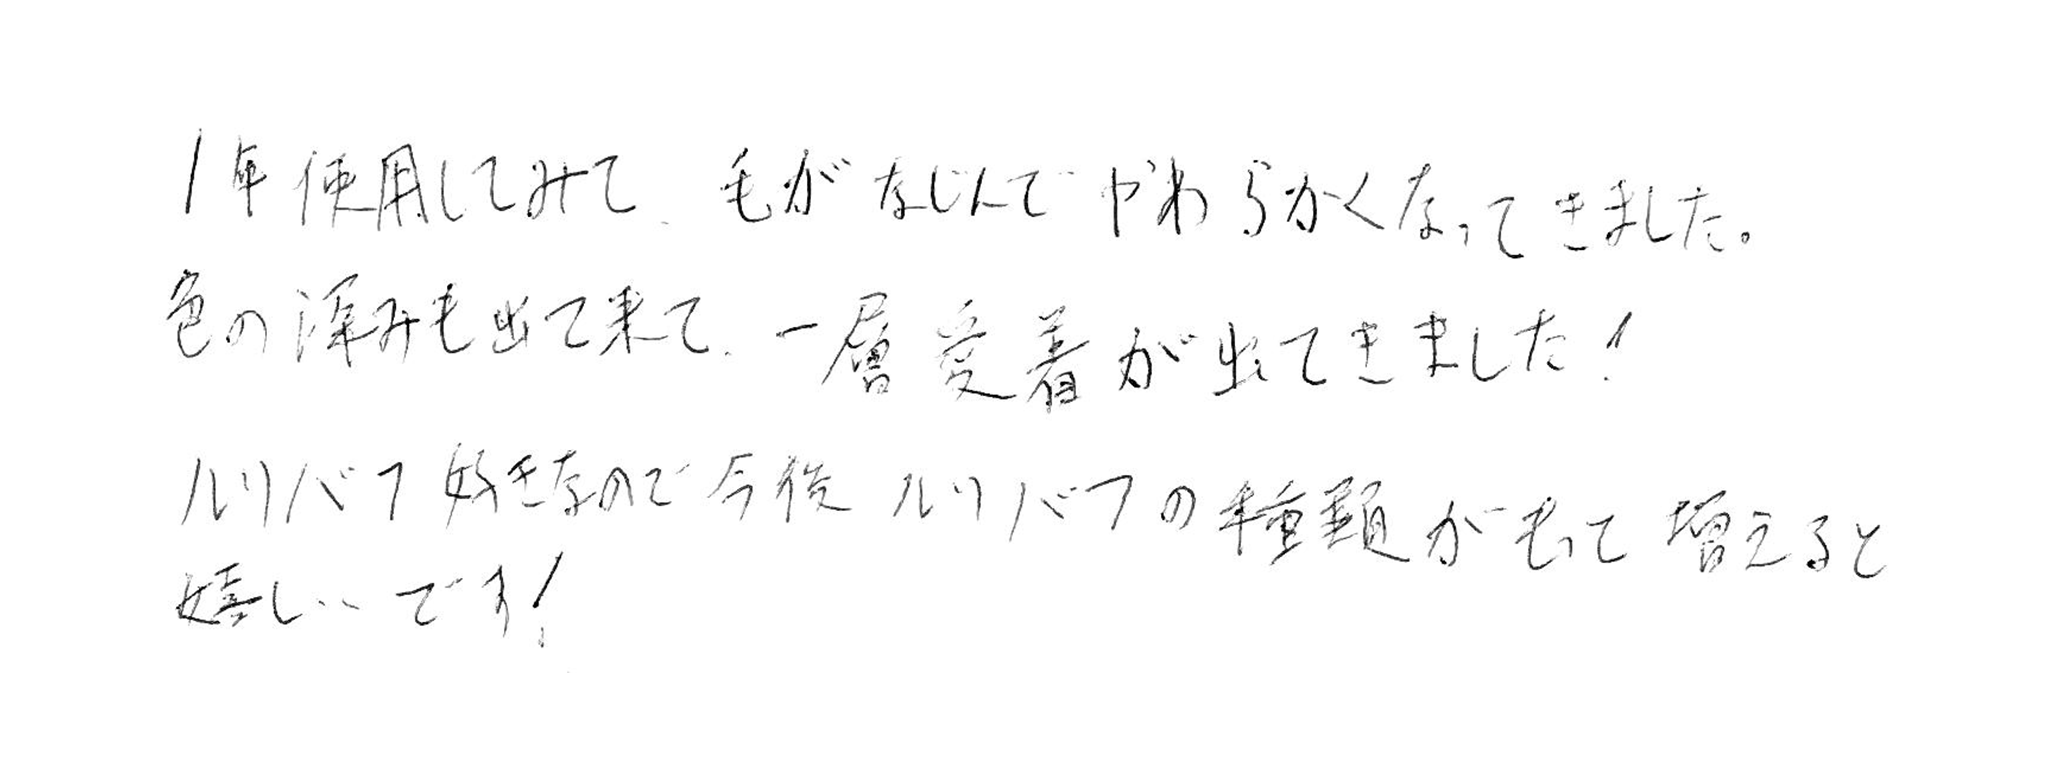 1年使用してみて、毛がなじんでやわらかくなってきました。
色の深みも出て来て、一層愛着が出てきました!
ルリバフ好きなので今後ルリバフの種類がもって増えると
嬉しいです!